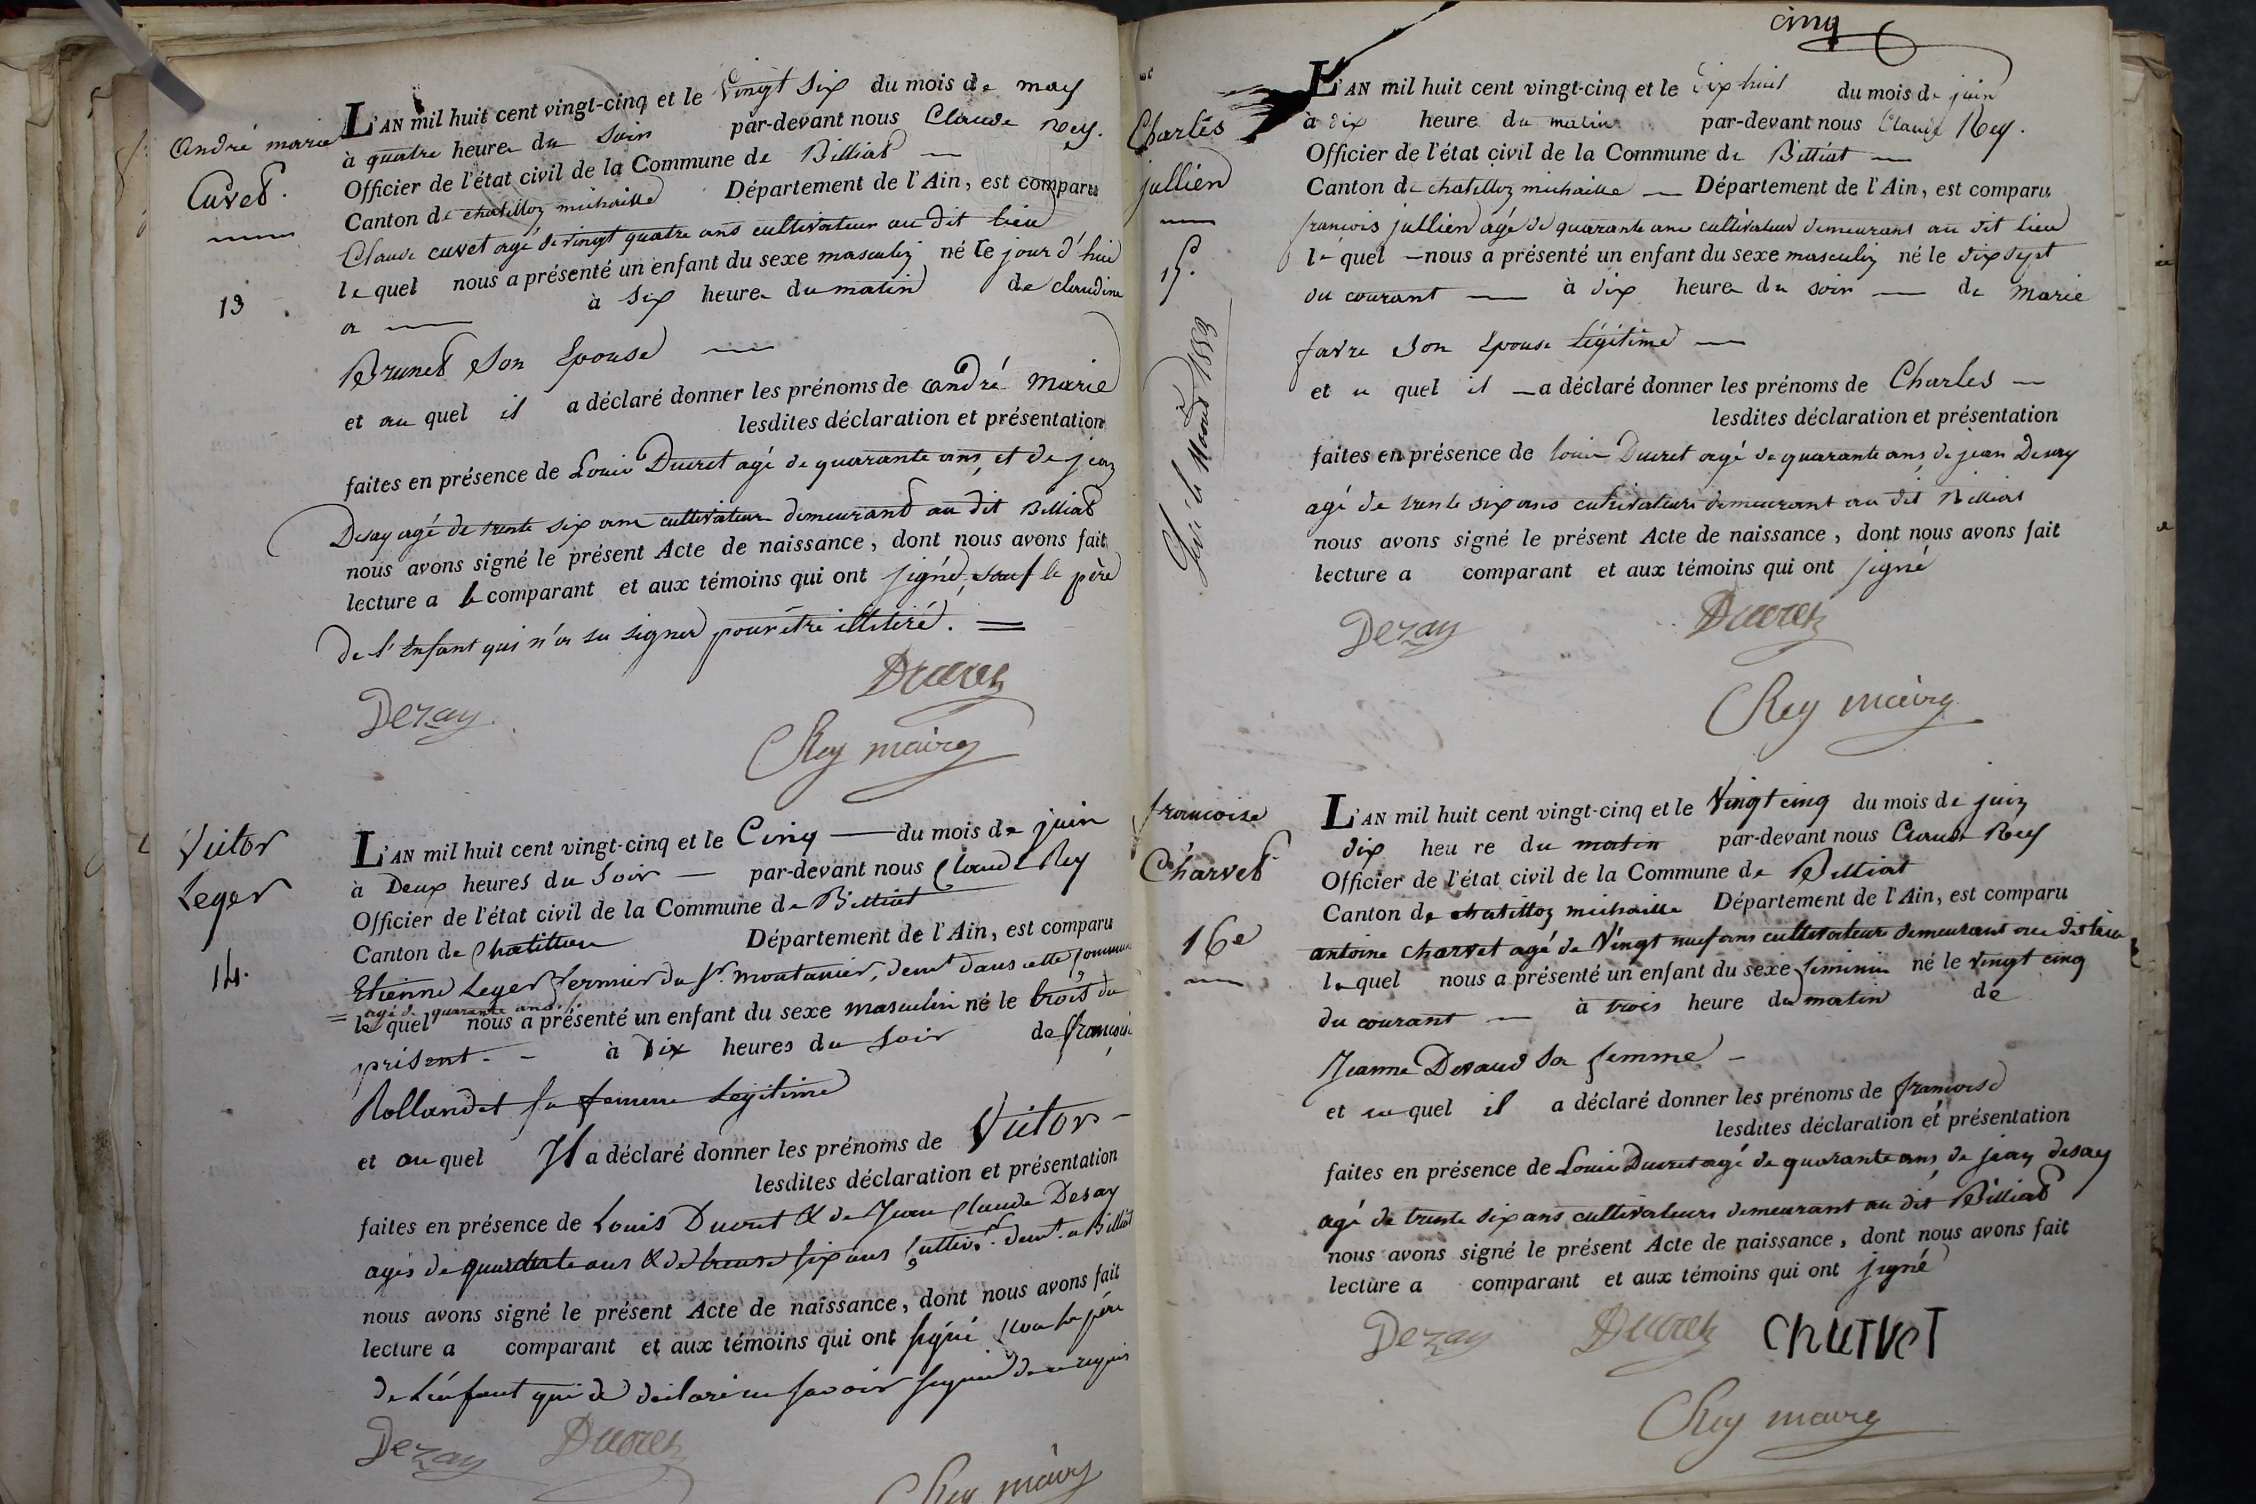 André marie
Cuvet.
13
L'AN mil huit cent vingt-cinq et le Vingt Six du mois de may
à quatre heure du Soir par-devant nous Claude Rey.
Officier de l'état civil de la Commune de Billiat
Canton de chatillon michaille Département de l'Ain, est comparu
Claude cuvet agé de vingt quatre ans cultivateur au dit lieu
le quel nous a présenté un enfant du sexe masculin né le jour d'hui
à Six heure du matin de claudine
Brunet Son Epouse
et au quel il a déclaré donner les prénoms de andré Marie
lesdites déclaration et présentation
faites en présence de Louis Ducret agé de quarante ans, et de jean
Desay agé de trente six ans cultivateurs demeurant au dit Billiat
nous avons signé le présent Acte de naissance, dont nous avons fait
lecture a le comparant et aux témoins qui ont signé, sauf le père
de l'Enfant qui n'a su signer pour être illitéré.
Ducret
Dezay
Rey maire
Victor
Leger
14.
L'AN mil huit cent vingt-cinq et le Cinq du mois de juin
à Deux heures du Soir par-devant nous Claude Rey
Officier de l'état civil de la Commune de Billiat
Canton de Chatillon Département de l'Ain, est comparu
Etienne Leger fermier du Sr. montanier, demt dans cette Commune
= agé de quarante ans.
le quel nous a présenté un enfant du sexe masculin né le trois du
présent. à Dix heures du Soir de françoise
Rollandet sa femme Legitime
et au quel Il a déclaré donner les prénoms de Victor
lesdites déclaration et présentation
faites en présence de Louis Ducret & de Jean Claude Desay
agés de quarante ans & de trente six ans Cultivrs. demt. a Billiat
nous avons signé le présent Acte de naissance, dont nous avons fait
lecture a comparant et aux témoins qui ont signé non le père
de L'enfant qui a déclaré ne savoir signer de ce requis
Dezay Ducret
Rey maire
cinq
Charles
jullien
15.
L'AN mil huit cent vingt-cinq et le dix huit du mois de juin
à dix heure du matin par-devant nous Claude Rey.
Officier de l'état civil de la Commune de Billiat
Canton de chatillon michaille Département de l'Ain, est comparu
francois jullien agé de quarante ans cultivateur demeurant au dit lieu
le quel nous a présenté un enfant du sexe masculin né le dix sept
du courant à dix heure du soir de Marie
favre Son Epouse Légitime
et au quel il a déclaré donner les prénoms de Charles
lesdites déclaration et présentation
faites en présence de louis Ducret agé de quarante ans, de jean Desay
agé de trente six ans cultivateurs demeurant au dit Billiat
nous avons signé le présent Acte de naissance, dont nous avons fait
lecture a comparant et aux témoins qui ont signé
Dezay Ducret
Rey maire
francoise
Charvet
16e
L'AN mil huit cent vingt-cinq et le Vingt cinq du mois de juin
dix heu re du matin par-devant nous Claude Rey
Officier de l'état civil de la Commune de Billiat
Canton de chatillon michaille Département de l'Ain, est comparu
antoine charvet agé de Vingt neuf ans cultivateur demeurant au dit lieu
le quel nous a présenté un enfant du sexe feminin né le vingt cinq
du courant à trois heure du matin de
Jeanne Devaud Sa femme
et au quel il a déclaré donner les prénoms de francoise
lesdites déclaration et présentation
faites en présence de Louis Ducret agé de quarante ans, de jean desay
agé de trente six ans cultivateurs demeurant au dit Billiat
nous avons signé le présent Acte de naissance, dont nous avons fait
lecture a comparant et aux témoins qui ont signé
Dezay Ducret Charvet
Rey maire